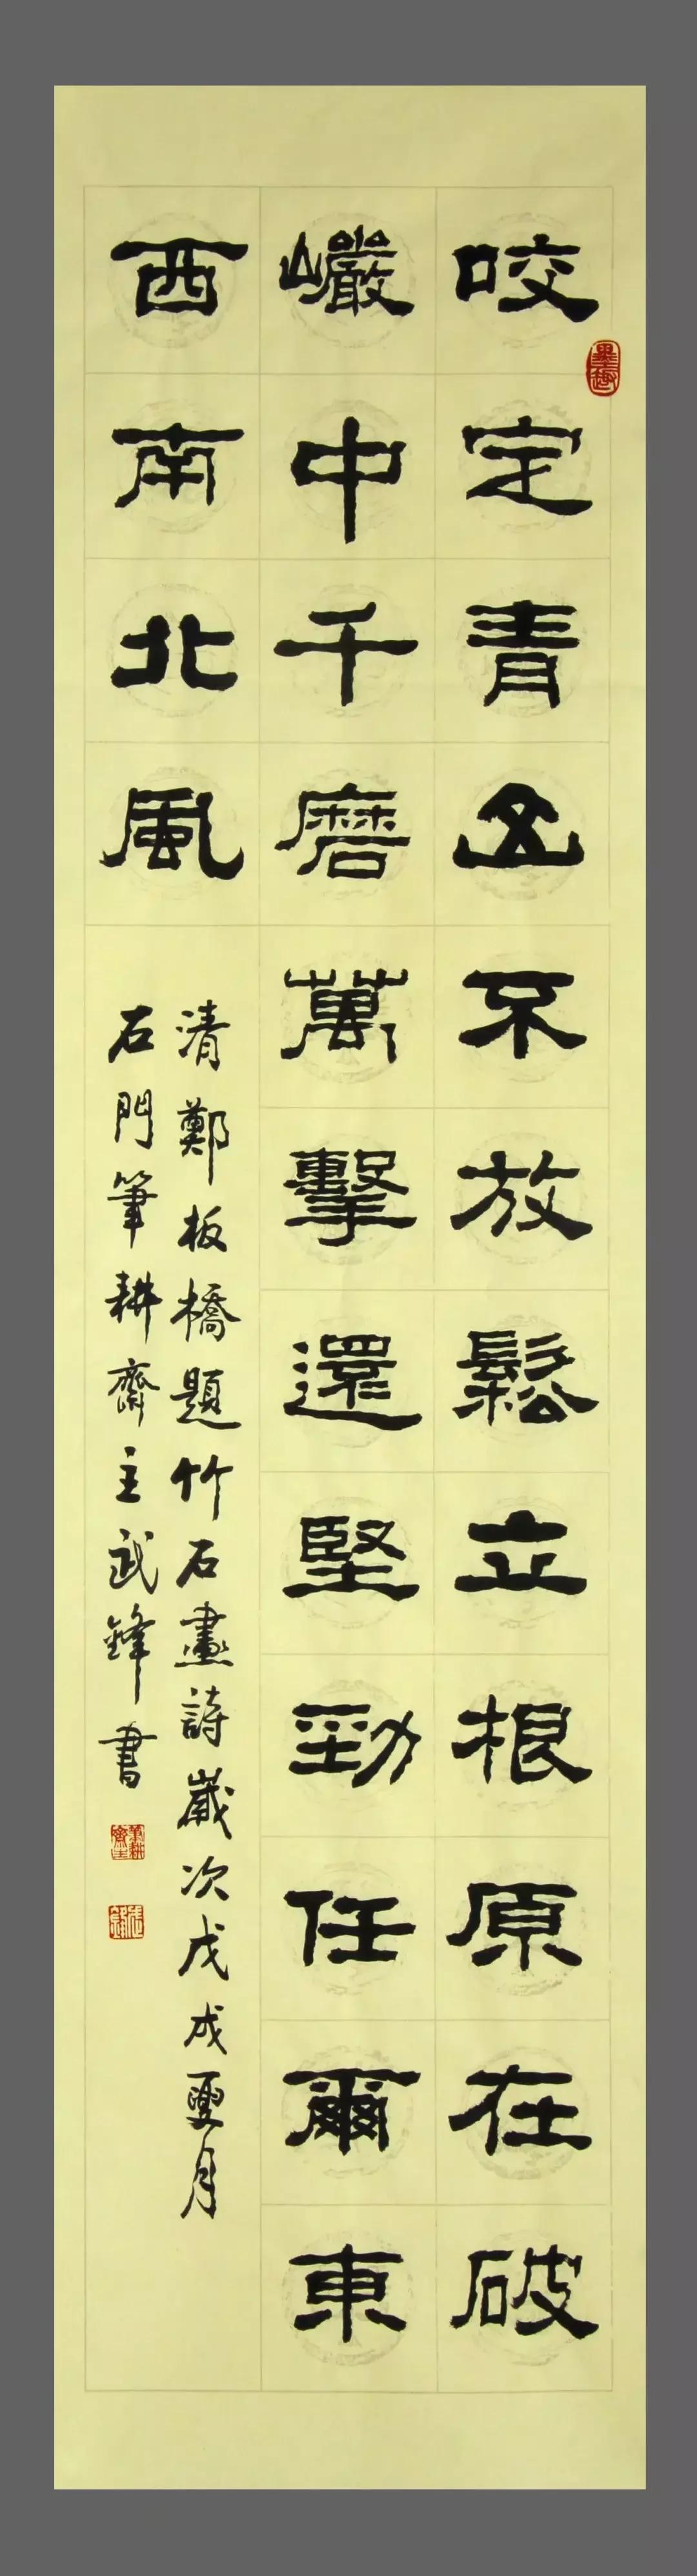 咬定青山不放鬆立根原在破
巖中千磨萬擊還堅勁任爾東
西南北風
清鄭板橋題竹石畫詩歲次戊戌夏月
石門筆耕齋主武鋒書
墨趣
筆耕齋主